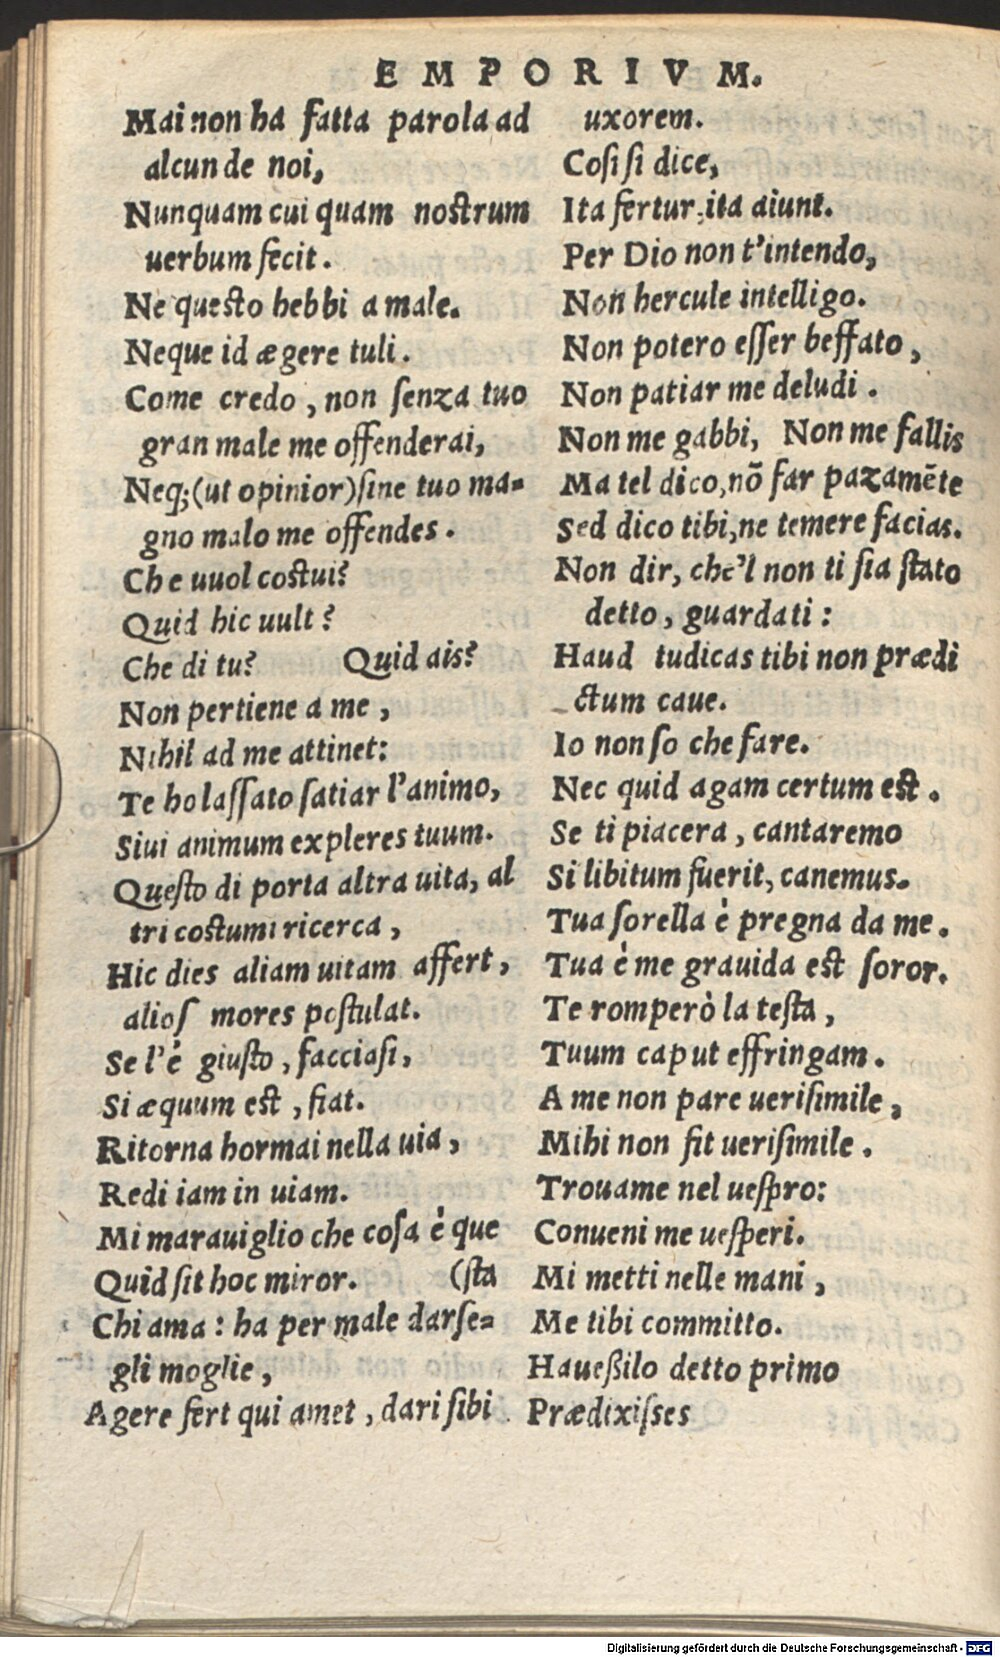 EMPORIVM.
Mai non ha fatta parola ad
alcun de noi,
Nunquam cui quam nostrum
uerbum fecit.
Ne questo hebbi a male.
Neque id ægere tuli.
Come credo, non ſenza tuo
gran male me offenderai,
Neq;(ut opinior)ſine tuo ma-
gno malo me offendes.
Che uuol costui?
Quid hic uult?
Che di tu? Quid ais?
Non pertiene a me,
Nihil ad me attinet:
Te ho laſſato ſatiar l'animo,
Siui animum expleres tuum.
Queſto di porta altra uita, al
tri costumi ricerca,
Hic dies aliam uitam affert,
alioſ mores poſtulat.
Se l'è giuſto, facciaſi,
Si æquum est, fiat.
Ritorna hormai nella uia,
Redi iam in uiam.
Mi marauiglio che coſa è que
Quid ſit hoc miror. (ſta
Chi ama: ha per male darſe-
gli moglie,
Agere fert qui amet, dari ſibi
uxorem.
Coſi ſi dice,
Ita fertur, ita aiunt.
Per Dio non t'intendo,
Non hercule intelligo.
Non potero eſſer beffato,
Non patiar me deludi.
Non me gabbi, Non me fallis
Ma tel dico,nõ far pazamẽte
Sed dico tibi,ne temere facias.
Non dir, che'l non ti ſia ſtato
detto, guardati:
Haud iudicas tibi non prædi
ctum caue.
Io non ſo che fare.
Nec quid agam certum est.
Se ti piacera, cantaremo
Si libitum fuerit, canemus.
Tua ſorella è pregna da me.
Tua è me grauida est ſoror.
Te romperò la teſta,
Tuum caput effringam.
A me non pare ueriſimile,
Mihi non fit ueriſimile.
Trouame nel ueſpro:
Conueni me ueſperi.
Mi metti nelle mani,
Me tibi committo.
Haueßilo detto primo
Prædixiſses
Digitalisierung gefördert durch die Deutsche Forschungsgemeinschaft - DFG